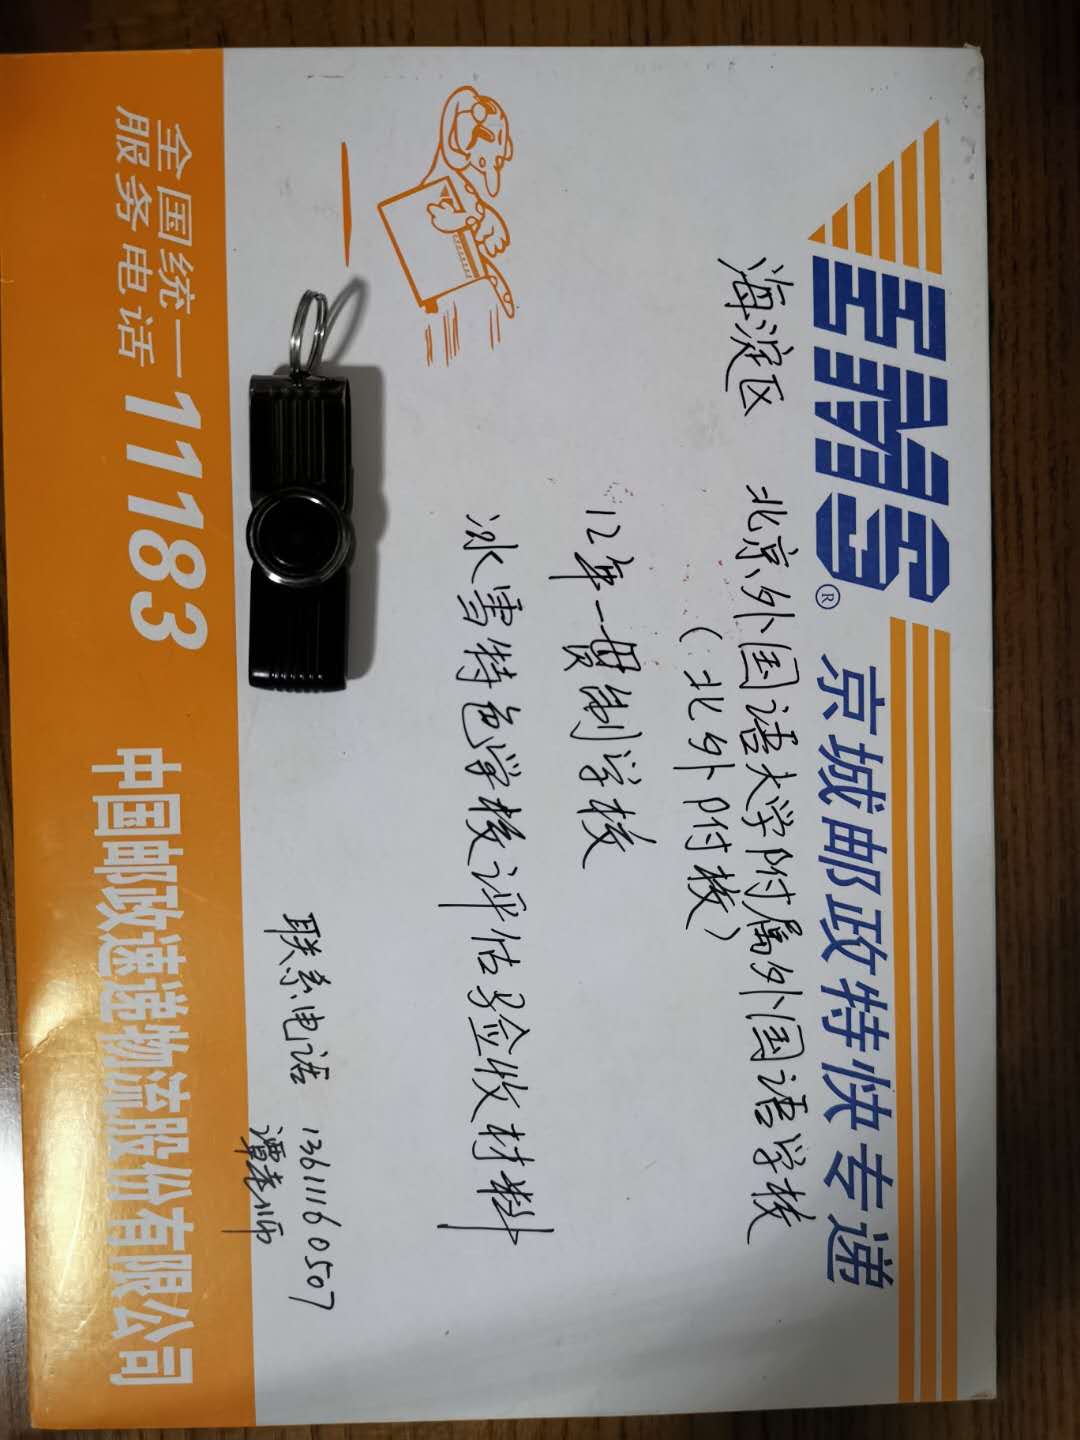 EMS® 京城邮政特快专递
海淀区 北京外国语大学附属外国语学校
(北外附校)
12年一贯制学校
冰雪特色学校评估验收材料
联系电话 13611160507
谭老师
全国统一
服务电话 11183
中国邮政速递物流股份有限公司